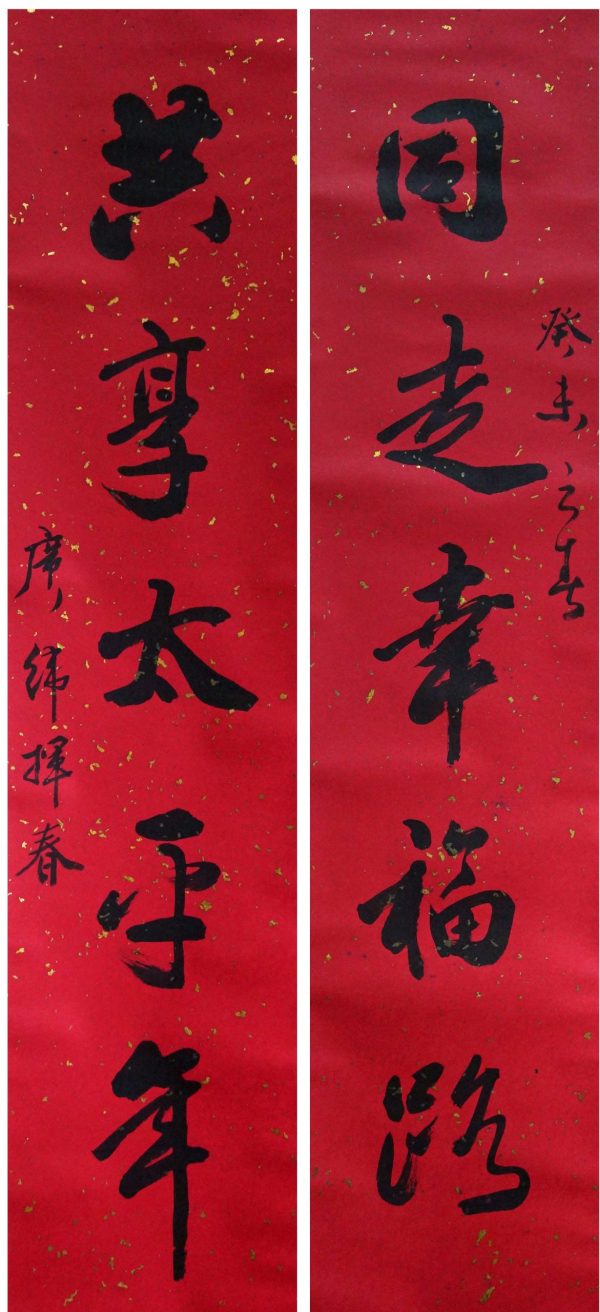 癸未之春
同走幸福路
共享太平年
席纬挥春